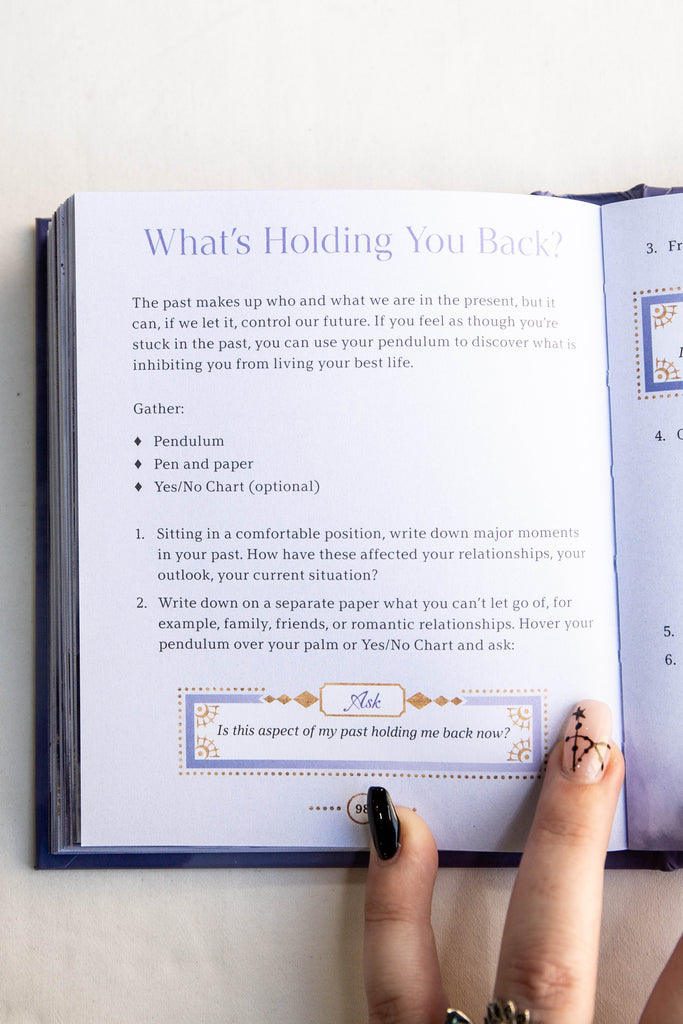 What's Holding You Back?
The past makes up who and what we are in the present, but it
can, if we let it, control our future. If you feel as though you're
stuck in the past, you can use your pendulum to discover what is
inhibiting you from living your best life.
Gather:
♦ Pendulum
♦ Pen and paper
♦ Yes/No Chart (optional)
1. Sitting in a comfortable position, write down major moments
in your past. How have these affected your relationships, your
outlook, your current situation?
2. Write down on a separate paper what you can't let go of, for
example, family, friends, or romantic relationships. Hover your
pendulum over your palm or Yes/No Chart and ask:
Ask
Is this aspect of my past holding me back now?
98
3.
4.
5.
6.